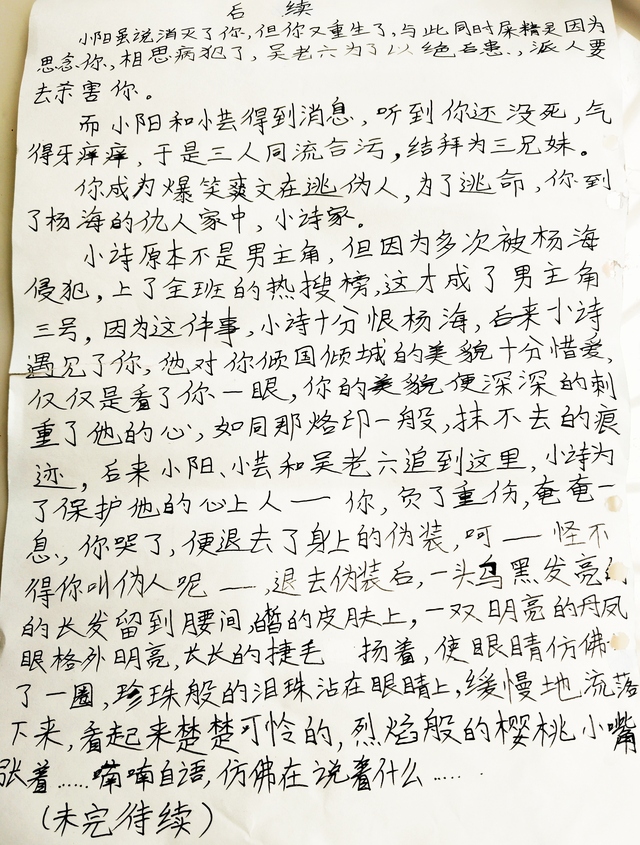 后续
小阳虽说消灭了你,但你又重生了,与此同时屎精灵因为
思念你,相思病犯了,吴老六为了以绝后患,派人要
去杀害你。
而小阳和小芸得到消息,听到你还没死,气
得牙痒痒,于是三人同流合污,结拜为三兄妹。
你成为爆笑爽文在逃伪人,为了逃命,你到
了杨海的仇人家中,小诗家。
小诗原本不是男主角,但因为多次被杨海
侵犯,上了全班的热搜榜,这才成了男主角
三号,因为这件事,小诗十分恨杨海,后来小诗
遇见了你,他对你倾国倾城的美貌十分惜爱,
仅仅是看了你一眼,你的美貌便深深的刺
重了他的心,如同那烙印一般,抹不去的痕
迹,后来小阳、小芸和吴老六追到这里,小诗为
了保护他的心上人——你,负了重伤,奄奄一
息,你哭了,便退去了身上的伪装,呵——怪不
得你叫伪人呢——,退去伪装后,一头乌黑发亮
的长发留到腰间,皙的皮肤上,一双明亮的丹凤
眼格外明亮,长长的捷毛 扬着,使眼睛仿佛
了一圈,珍珠般的泪珠沾在眼睛上,缓慢地流落
下来,看起来楚楚可怜的,烈焰般的樱桃小嘴
张着……喃喃自语,仿佛在说着什么……
(未完待续)